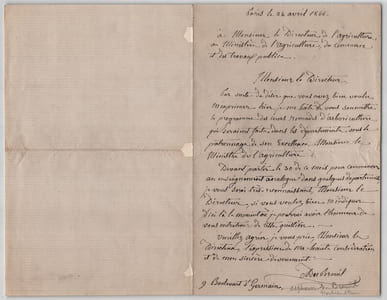 Paris le 24 avril 1866.
à Monsieur le Directeur de l'agriculture
au Ministère de l'agriculture, du commerce
et des travaux publics.
Monsieur le Directeur
Par suite du désir que vous avez bien voulu
m'exprimer hier, je me hâte de vous soumettre
le programme des cours nomades d'arboriculture
qui seraient faits dans les départements sous le
patronage de son Excellence Monsieur le
Ministre de l'agriculture.
Devant partir le 30 de ce mois pour commencer
un enseignement analogue dans quelques départements
je vous serais très reconnaissant, Monsieur le
Directeur, si vous voulez bien m'indiquer
d'ici là le moment où je pourrais avoir l'honneur de
vous entretenir de cette question.
Veuillez agréer, je vous prie, Monsieur le
Directeur l'expression de ma haute considération
et de mon sincère dévouement
Du Breuil
9 Boulevart St Germain,